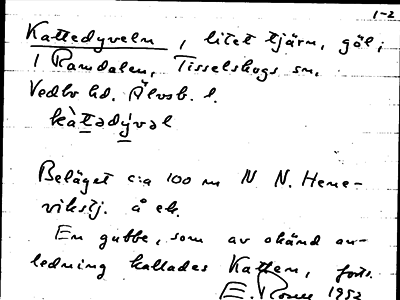 1-2
Kattedyveln, litet tjärn, göl,
i Ramdalen, Tisselskogs sn,
Vedbo hd. Älvsb. l.
kàtədývəl
Beläget c:a 100 m N N. Hene-
vikstj. å ek.
En gubbe, som av okänd an-
ledning kallades Katten, forts.
E. Rosell 1952